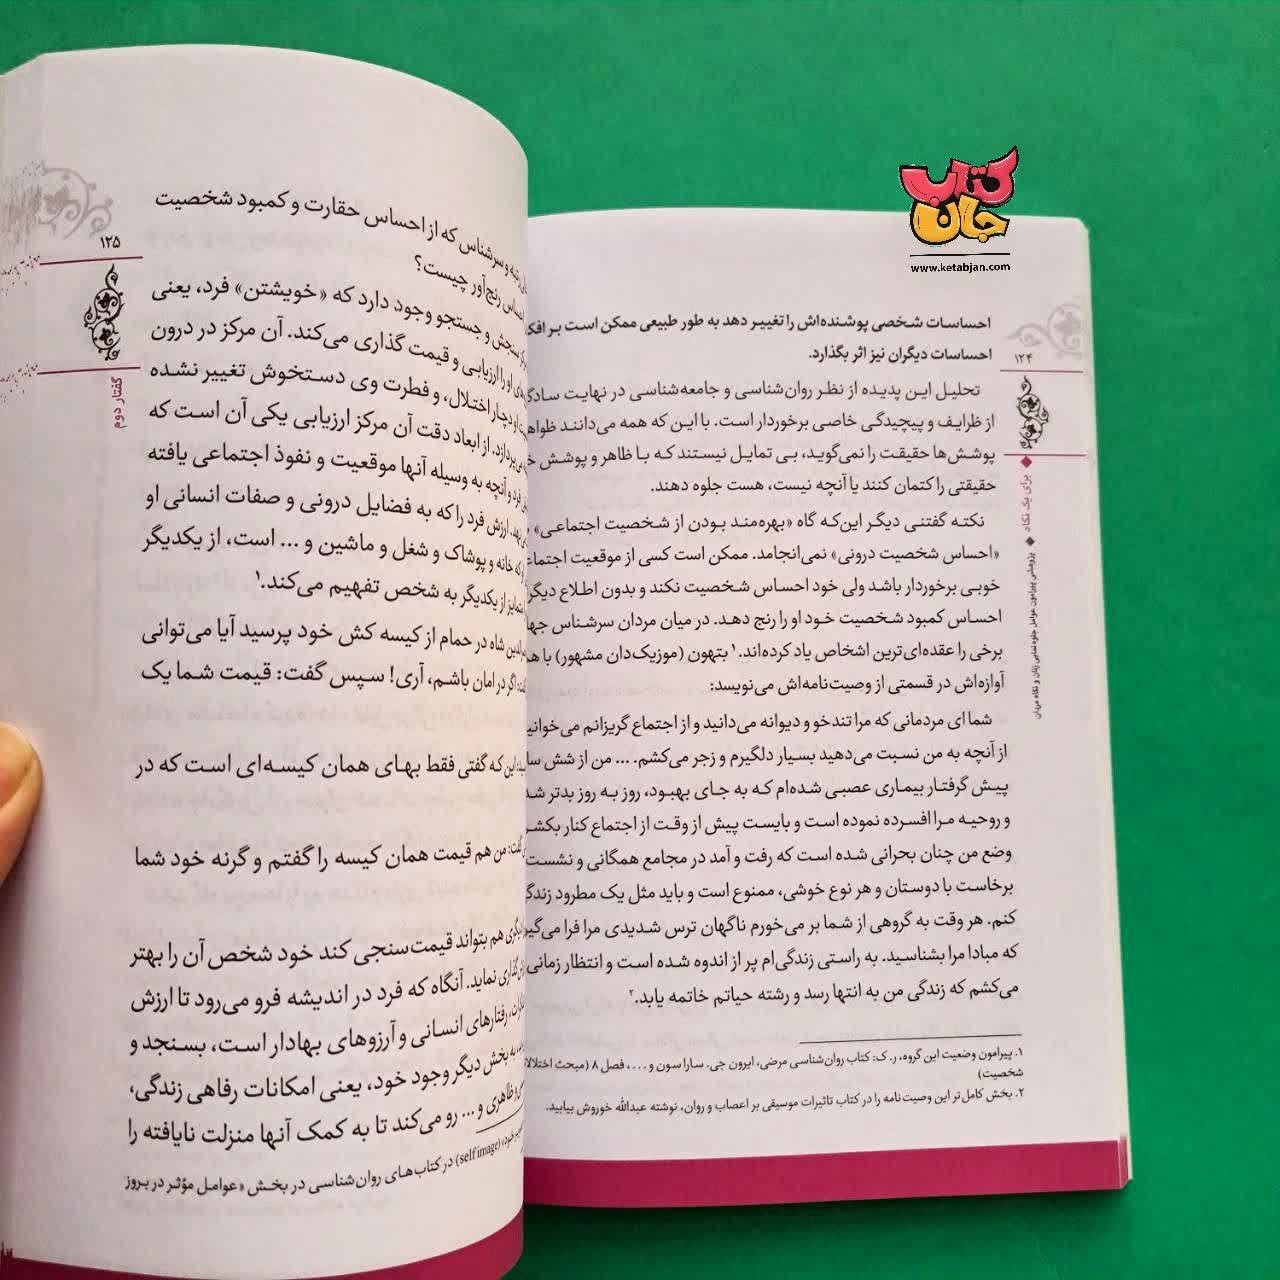 کتاب
جان
www.ketabjan.com
۱۲۴
برای یک نگاه ◆ پژوهشی پیرامون عوامل جلوه‌نمایی زنان و نگاه مردان
احساسات شخصی پوشنده‌اش را تغییر دهد به طور طبیعی ممکن است بر
احساسات دیگران نیز اثر بگذارد.
تحلیل این پدیده از نظر روان‌شناسی و جامعه‌شناسی در نهایت
از ظرایف و پیچیدگی خاصی برخوردار است. با این که همه می‌دانند
پوشش‌ها حقیقت را نمی‌گوید، بی تمایل نیستند که با ظاهر و پوشش
حقیقتی را کتمان کنند یا آنچه نیست، هست جلوه دهند.
نکته گفتنی دیگر این‌که گاه «بهره‌مند بودن از شخصیت اجتماعی»
«احساس شخصیت درونی» نمی‌انجامد. ممکن است کسی از موقعیت
خوبی برخوردار باشد ولی خود احساس شخصیت نکند و بدون اطلاع
احساس کمبود شخصیت خود او را رنج دهد. در میان مردان سرشناس
برخی را عقده‌ای‌ترین اشخاص یاد کرده‌اند.۱ بتهون (موزیک‌دان مشهور) با
آوازه‌اش در قسمتی از وصیت‌نامه‌اش می‌نویسد:
شما ای مردمانی که مرا تندخو و دیوانه می‌دانید و از اجتماع گریزانم
از آنچه به من نسبت می‌دهید بسیار دلگیرم و زجر می‌کشم. ... من از شش
پیش گرفتار بیماری عصبی شده‌ام که به جای بهبود، روز به روز بدتر
و روحیه مرا افسرده نموده است و بایست پیش از وقت از اجتماع کنار
وضع من چنان بحرانی شده است که رفت و آمد در مجامع همگانی و نشست
برخاست با دوستان و هر نوع خوشی، ممنوع است و باید مثل یک مطرود
کنم. هر وقت به گروهی از شما بر می‌خورم ناگهان ترس شدیدی مرا فرا
که مبادا مرا بشناسید. به راستی زندگی‌ام پر از اندوه شده است و انتظار زمانی
می‌کشم که زندگی من به انتها رسد و رشته حیاتم خاتمه یابد.۲
۱. پیرامون وضعیت این گروه، ر.ک: کتاب روان‌شناسی مرضی، ایرون جی. سارا سون و ...، فصل ۸ (مبحث
شخصیت)
۲. بخش کامل‌تر این وصیت‌نامه را در کتاب تاثیرات موسیقی بر اعصاب و روان، نوشته عبدالله خوروش بیابید.
۱۲۵
گفتار دوم
و سرشناس که از احساس حقارت و کمبود شخصیت
رنج‌آور چیست؟
سنجش و جستجو وجود دارد که «خویشتن» فرد، یعنی
او را ارزیابی و قیمت گذاری می‌کند. آن مرکز در درون
دچار اختلال، و فطرت وی دستخوش تغییر نشده
می‌پردازد. از ابعاد دقت آن مرکز ارزیابی یکی آن است که
فرد و آنچه به وسیله آنها موقعیت و نفوذ اجتماعی یافته
ارزش فرد را که به فضایل درونی و صفات انسانی او
که خانه و پوشاک و شغل و ماشین و ... است، از یکدیگر
متمایز از یکدیگر به شخص تفهیم می‌کند.۱
شاه در حمام از کیسه کش خود پرسید آیا می‌توانی
اگر در امان باشم، آری! سپس گفت: قیمت شما یک
این که گفتی فقط بهای همان کیسه‌ای است که در
گفت: من هم قیمت همان کیسه را گفتم و گرنه خود شما
دیگری هم بتواند قیمت‌سنجی کند خود شخص آن را بهتر
گذاری نماید. آنگاه که فرد در اندیشه فرو می‌رود تا ارزش
رفتارهای انسانی و آرزوهای بهادار است، بسنجد و
به بخش دیگر وجود خود، یعنی امکانات رفاهی زندگی،
ظاهری و ... رو می‌کند تا به کمک آنها منزلت نایافته را
(self image) در کتاب‌های روان‌شناسی در بخش «عوامل مؤثر در بروز